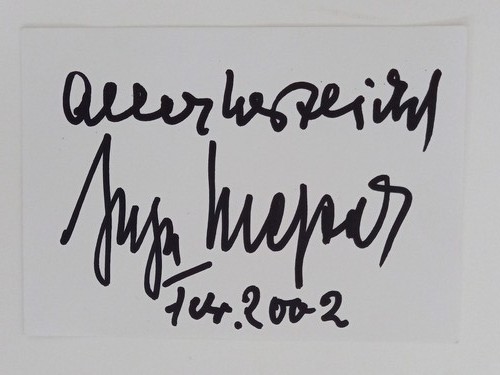 Allerherzlichst
Inge Meysel
2002